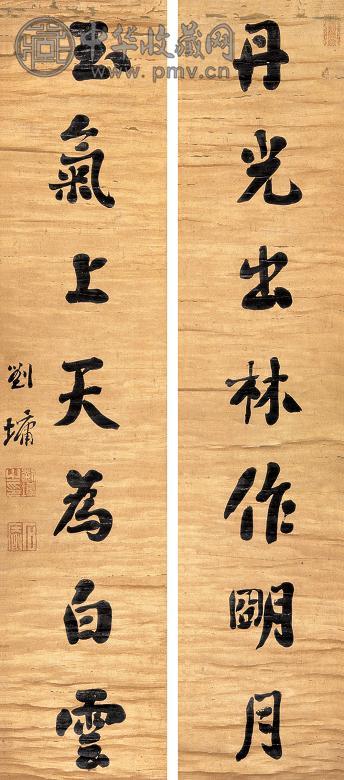 丹光出林作朙月
玉氣上天為白雲
劉墉
中华收藏网
www.pmv.cn